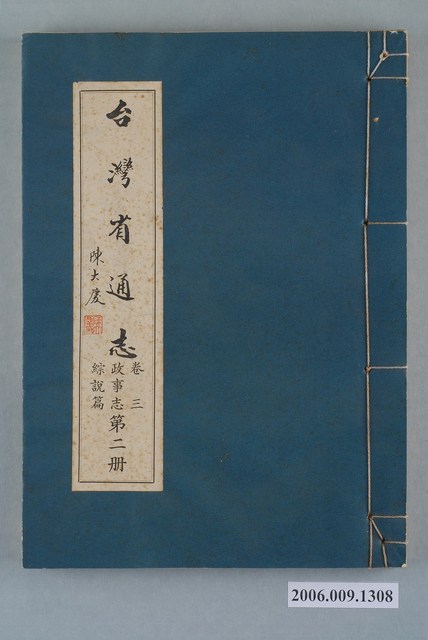 台灣省通志
卷三
政事志
綜說篇
第二册
陳大慶
2006.009.1308